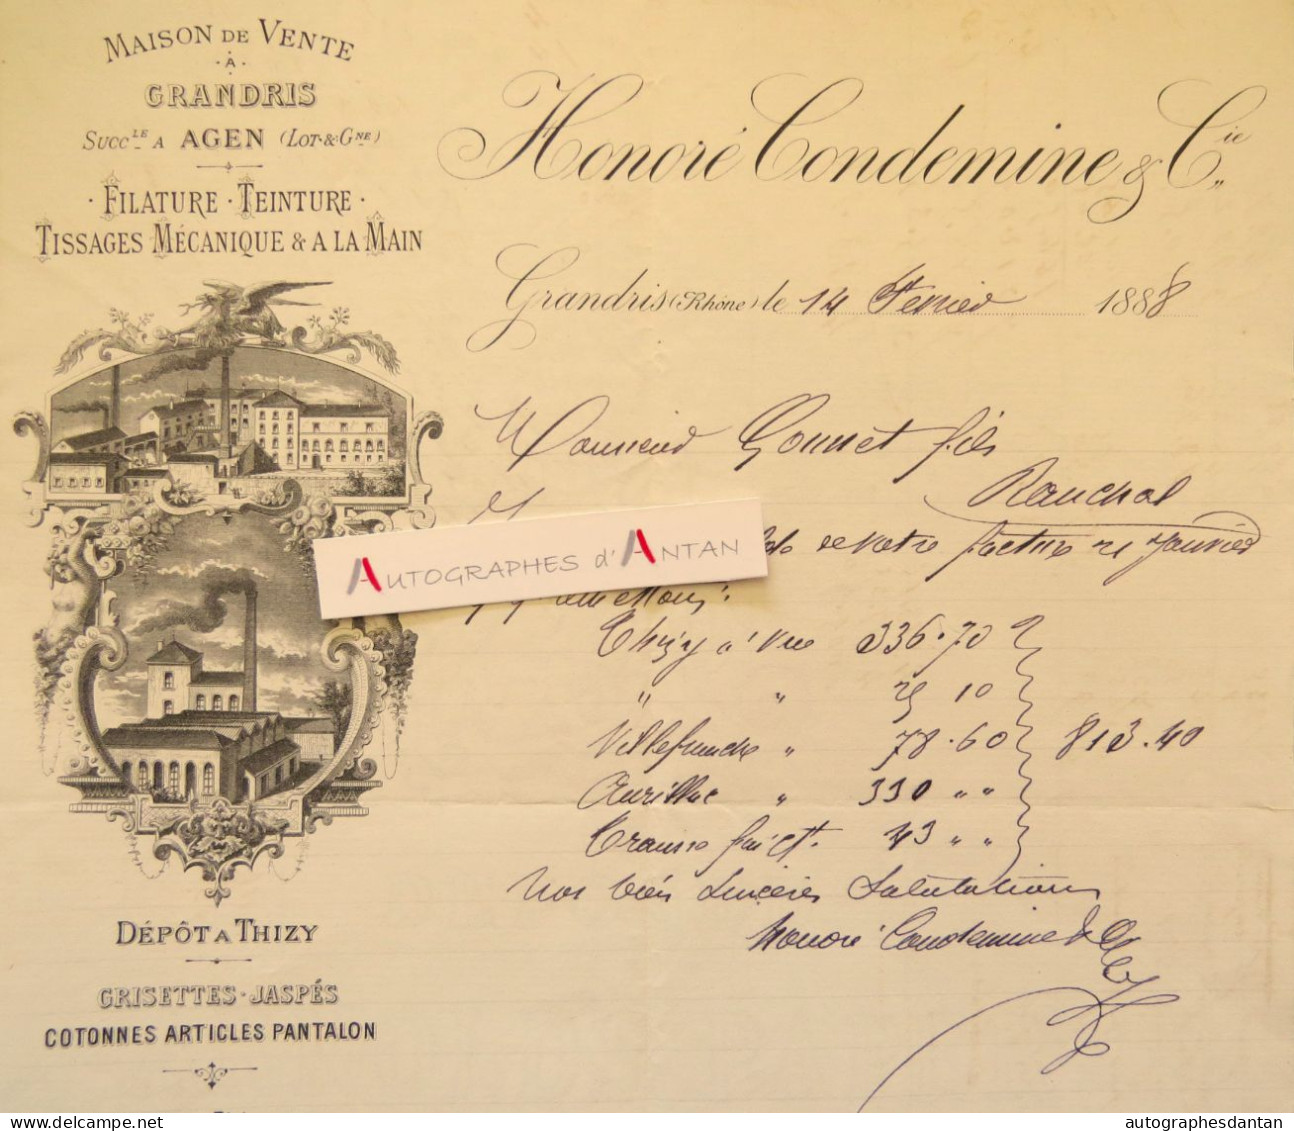 MAISON DE VENTE
·A·
GRANDRIS
SUCC.LE A AGEN (LOT-&-GNE)
· FILATURE · TEINTURE ·
TISSAGES MÉCANIQUE & A LA MAIN
DÉPÔT A THIZY
GRISETTES-JASPÉS
COTONNES ARTICLES PANTALON
Honoré Condemine & Cie.
Grandris (Rhône) le 14 fevrier 1888
Monsieur Gonnet fils
Ranchal
de votre facture Janvier
AUTOGRAPHES d'ANTAN
Thizy à vue 336.70
" " 25 10
Villefranche " 78.60 813.40
Aurillac " 330 " "
43 " "
Nos bien sincères salutations
Honoré Condemine & Cie
autographesdantan